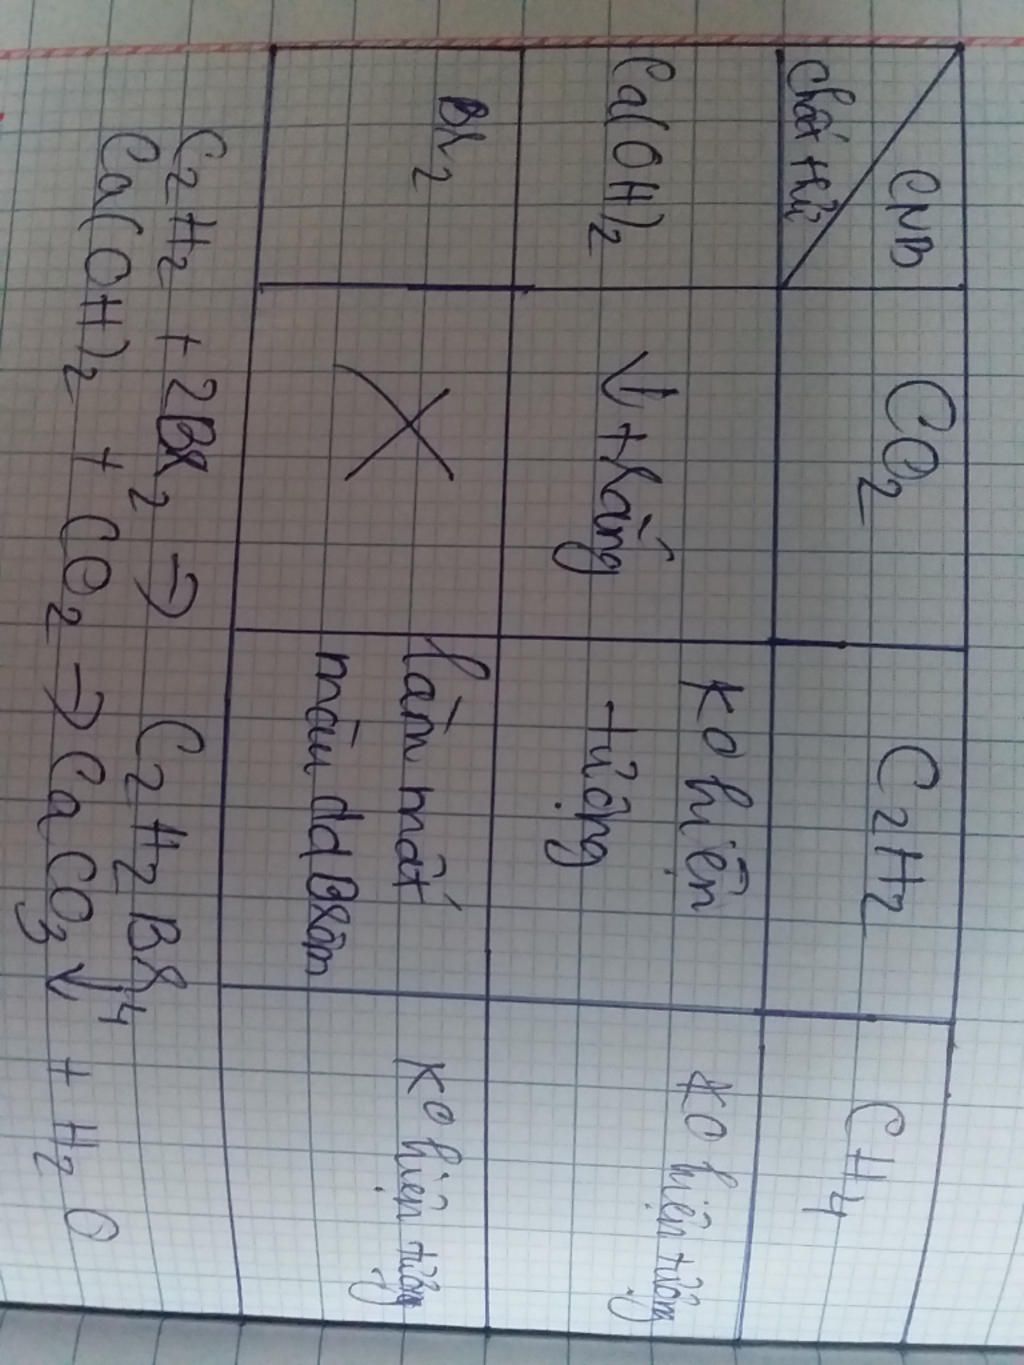 CNB CO2 C2H2 CH4
Chất thử
Ca(OH)2 ↓ trắng Ko hiện tượng Ko hiện tượng
Br2 X làm mất màu dd Brôm Ko hiện tượng
C2H2 + 2Br2 → C2H2Br4
Ca(OH)2 + CO2 → CaCO3 ↓ + H2O